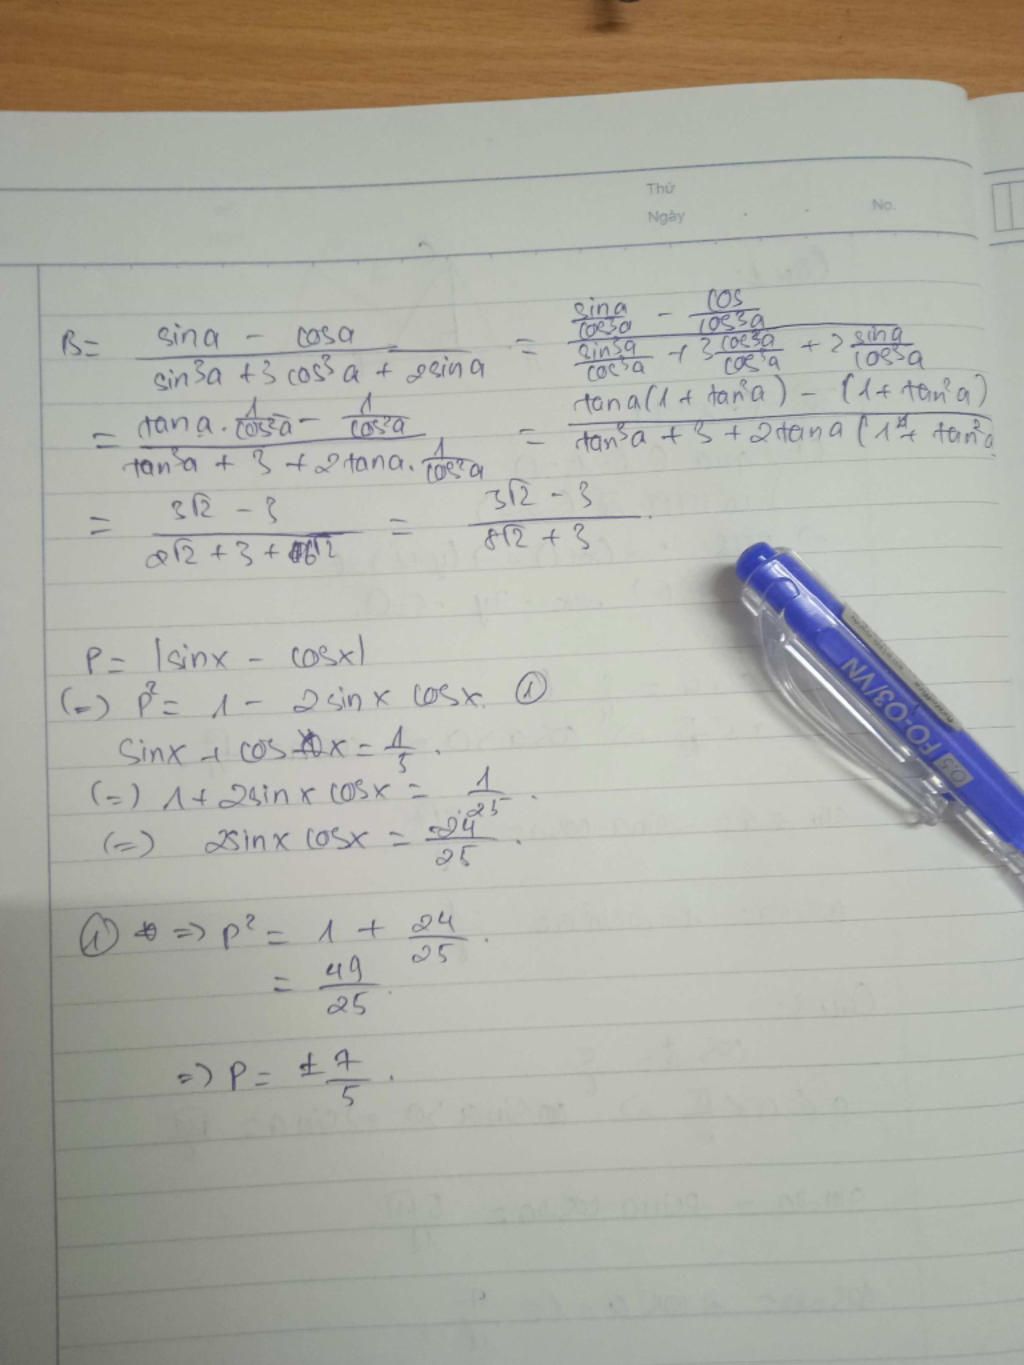 Thứ
Ngày
No.
B = \frac{sina - cosa}{sin³a + 3cos³a + 2sina} = \frac{\frac{sina}{cos³a} - \frac{cos}{cos³a}}{\frac{sin³a}{cos³a} + 3\frac{cos³a}{cos³a} + 2\frac{sina}{cos³a}}
= \frac{tana.\frac{1}{cos²a} - \frac{1}{cos²a}}{tan³a + 3 + 2tana.\frac{1}{cos²a}} = \frac{tana(1 + tan²a) - (1 + tan²a)}{tan³a + 3 + 2tana(1 + tan²a}
= \frac{3√2 - 3}{2√2 + 3 + 6√2} = \frac{3√2 - 3}{8√2 + 3}.
P = |sinx - cosx|
(=) P² = 1 - 2sinx cosx. ①
sinx + cosx = \frac{1}{5}.
(=) 1 + 2sinx cosx = \frac{1}{25}.
(=) 2sinx cosx = \frac{-24}{25}.
① => P² = 1 + \frac{24}{25}.
= \frac{49}{25}.
=> P = ±\frac{7}{5}.
0.5 FO-03/VN